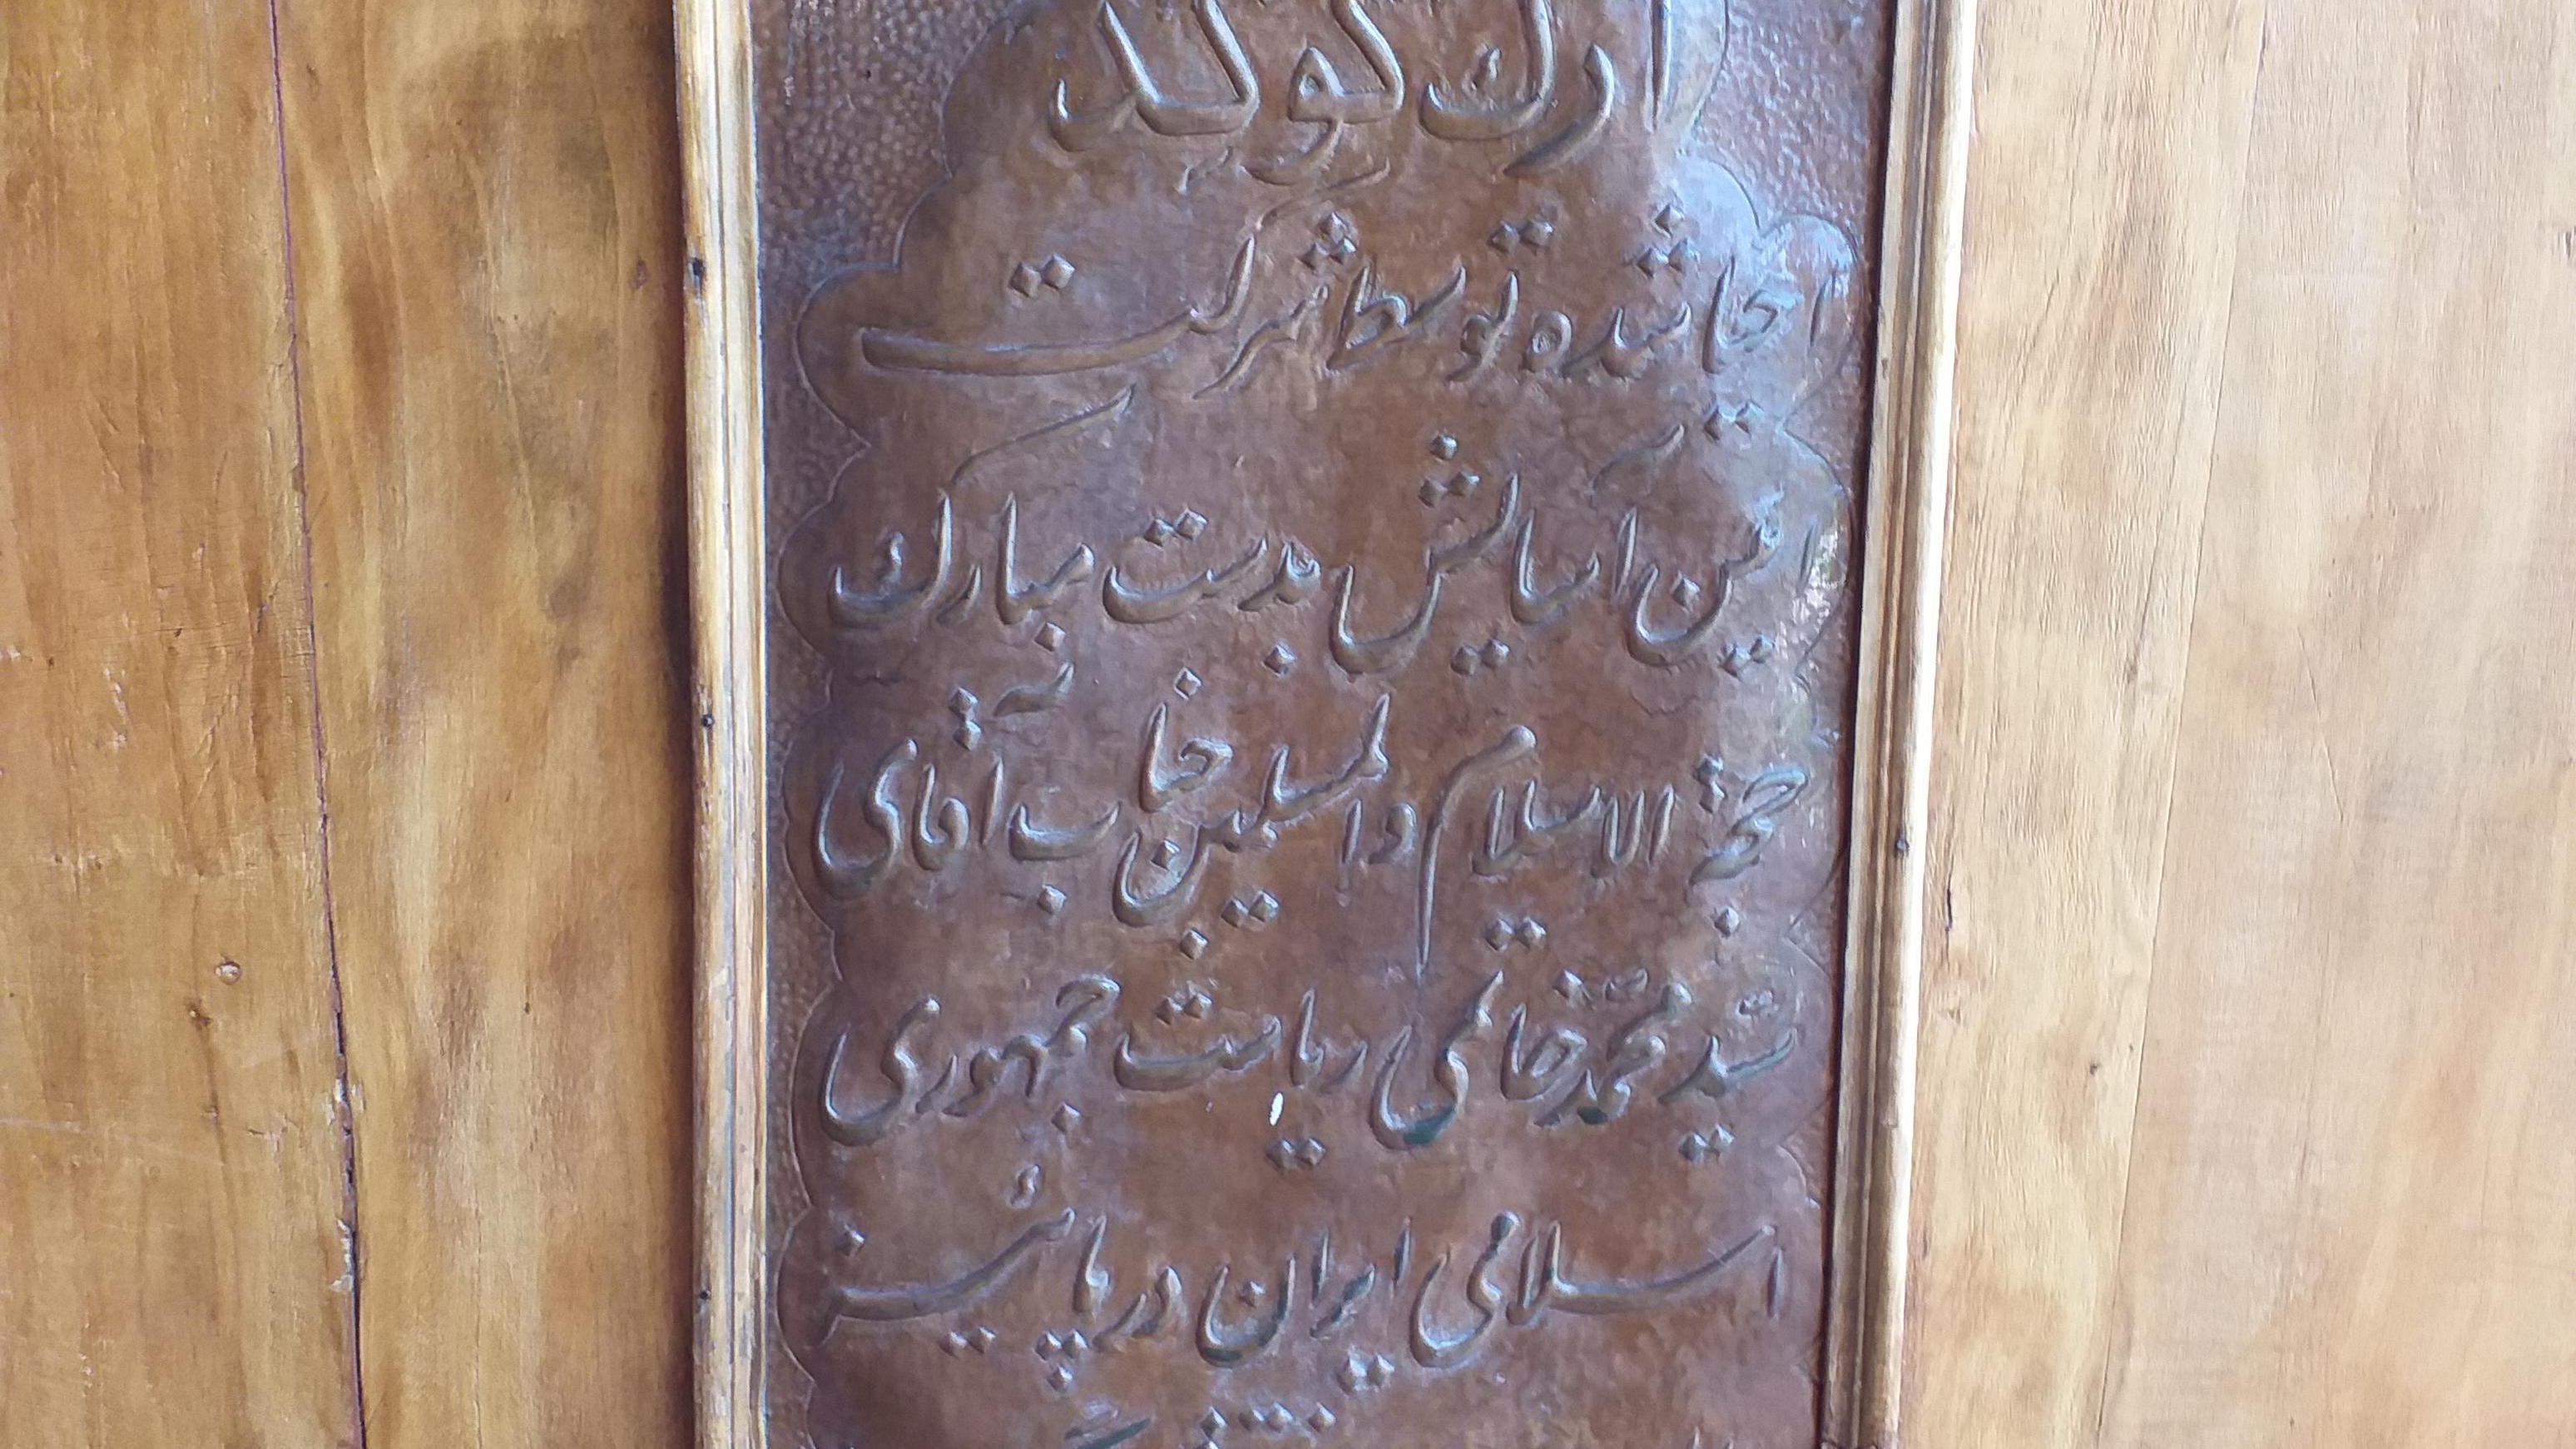 ارگ گوگد
احیا شده توسط شرکت
آئین آسایش بدست مبارک
حجة الاسلام والمسلمین جناب آقای
سیّد محمّد خاتمی ریاست جمهوری
اسلامی ایران در پائیز